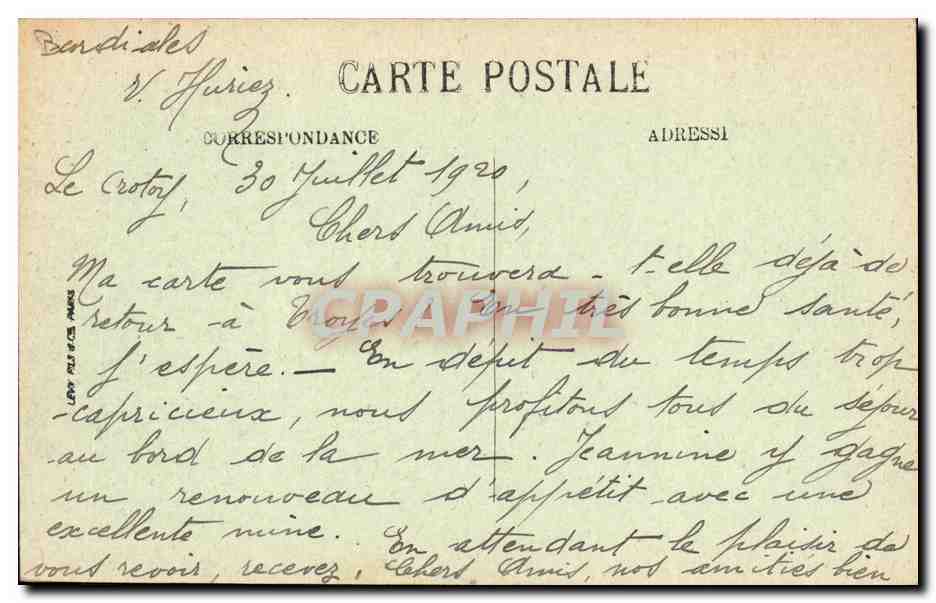 CARTE POSTALE
CORRESPONDANCE
ADRESSE
Le Crotoy, 30 Juillet 1920,
Chers Amis,
Ma carte vous trouvera-t-elle déjà de
retour à Troyes En très bonne santé,
j'espère. — En dépit du temps trop
capricieux, nous profitons tous du séjour
au bord de la mer. Jeannine y gagne
un renouveau d'appétit avec une
excellente mine. En attendant le plaisir de
vous revoir, recevez, Chers Amis, nos amitiés bien
cordiales
V. Huriez.
LEVY FILS & Cie PARIS
CPAPHIL